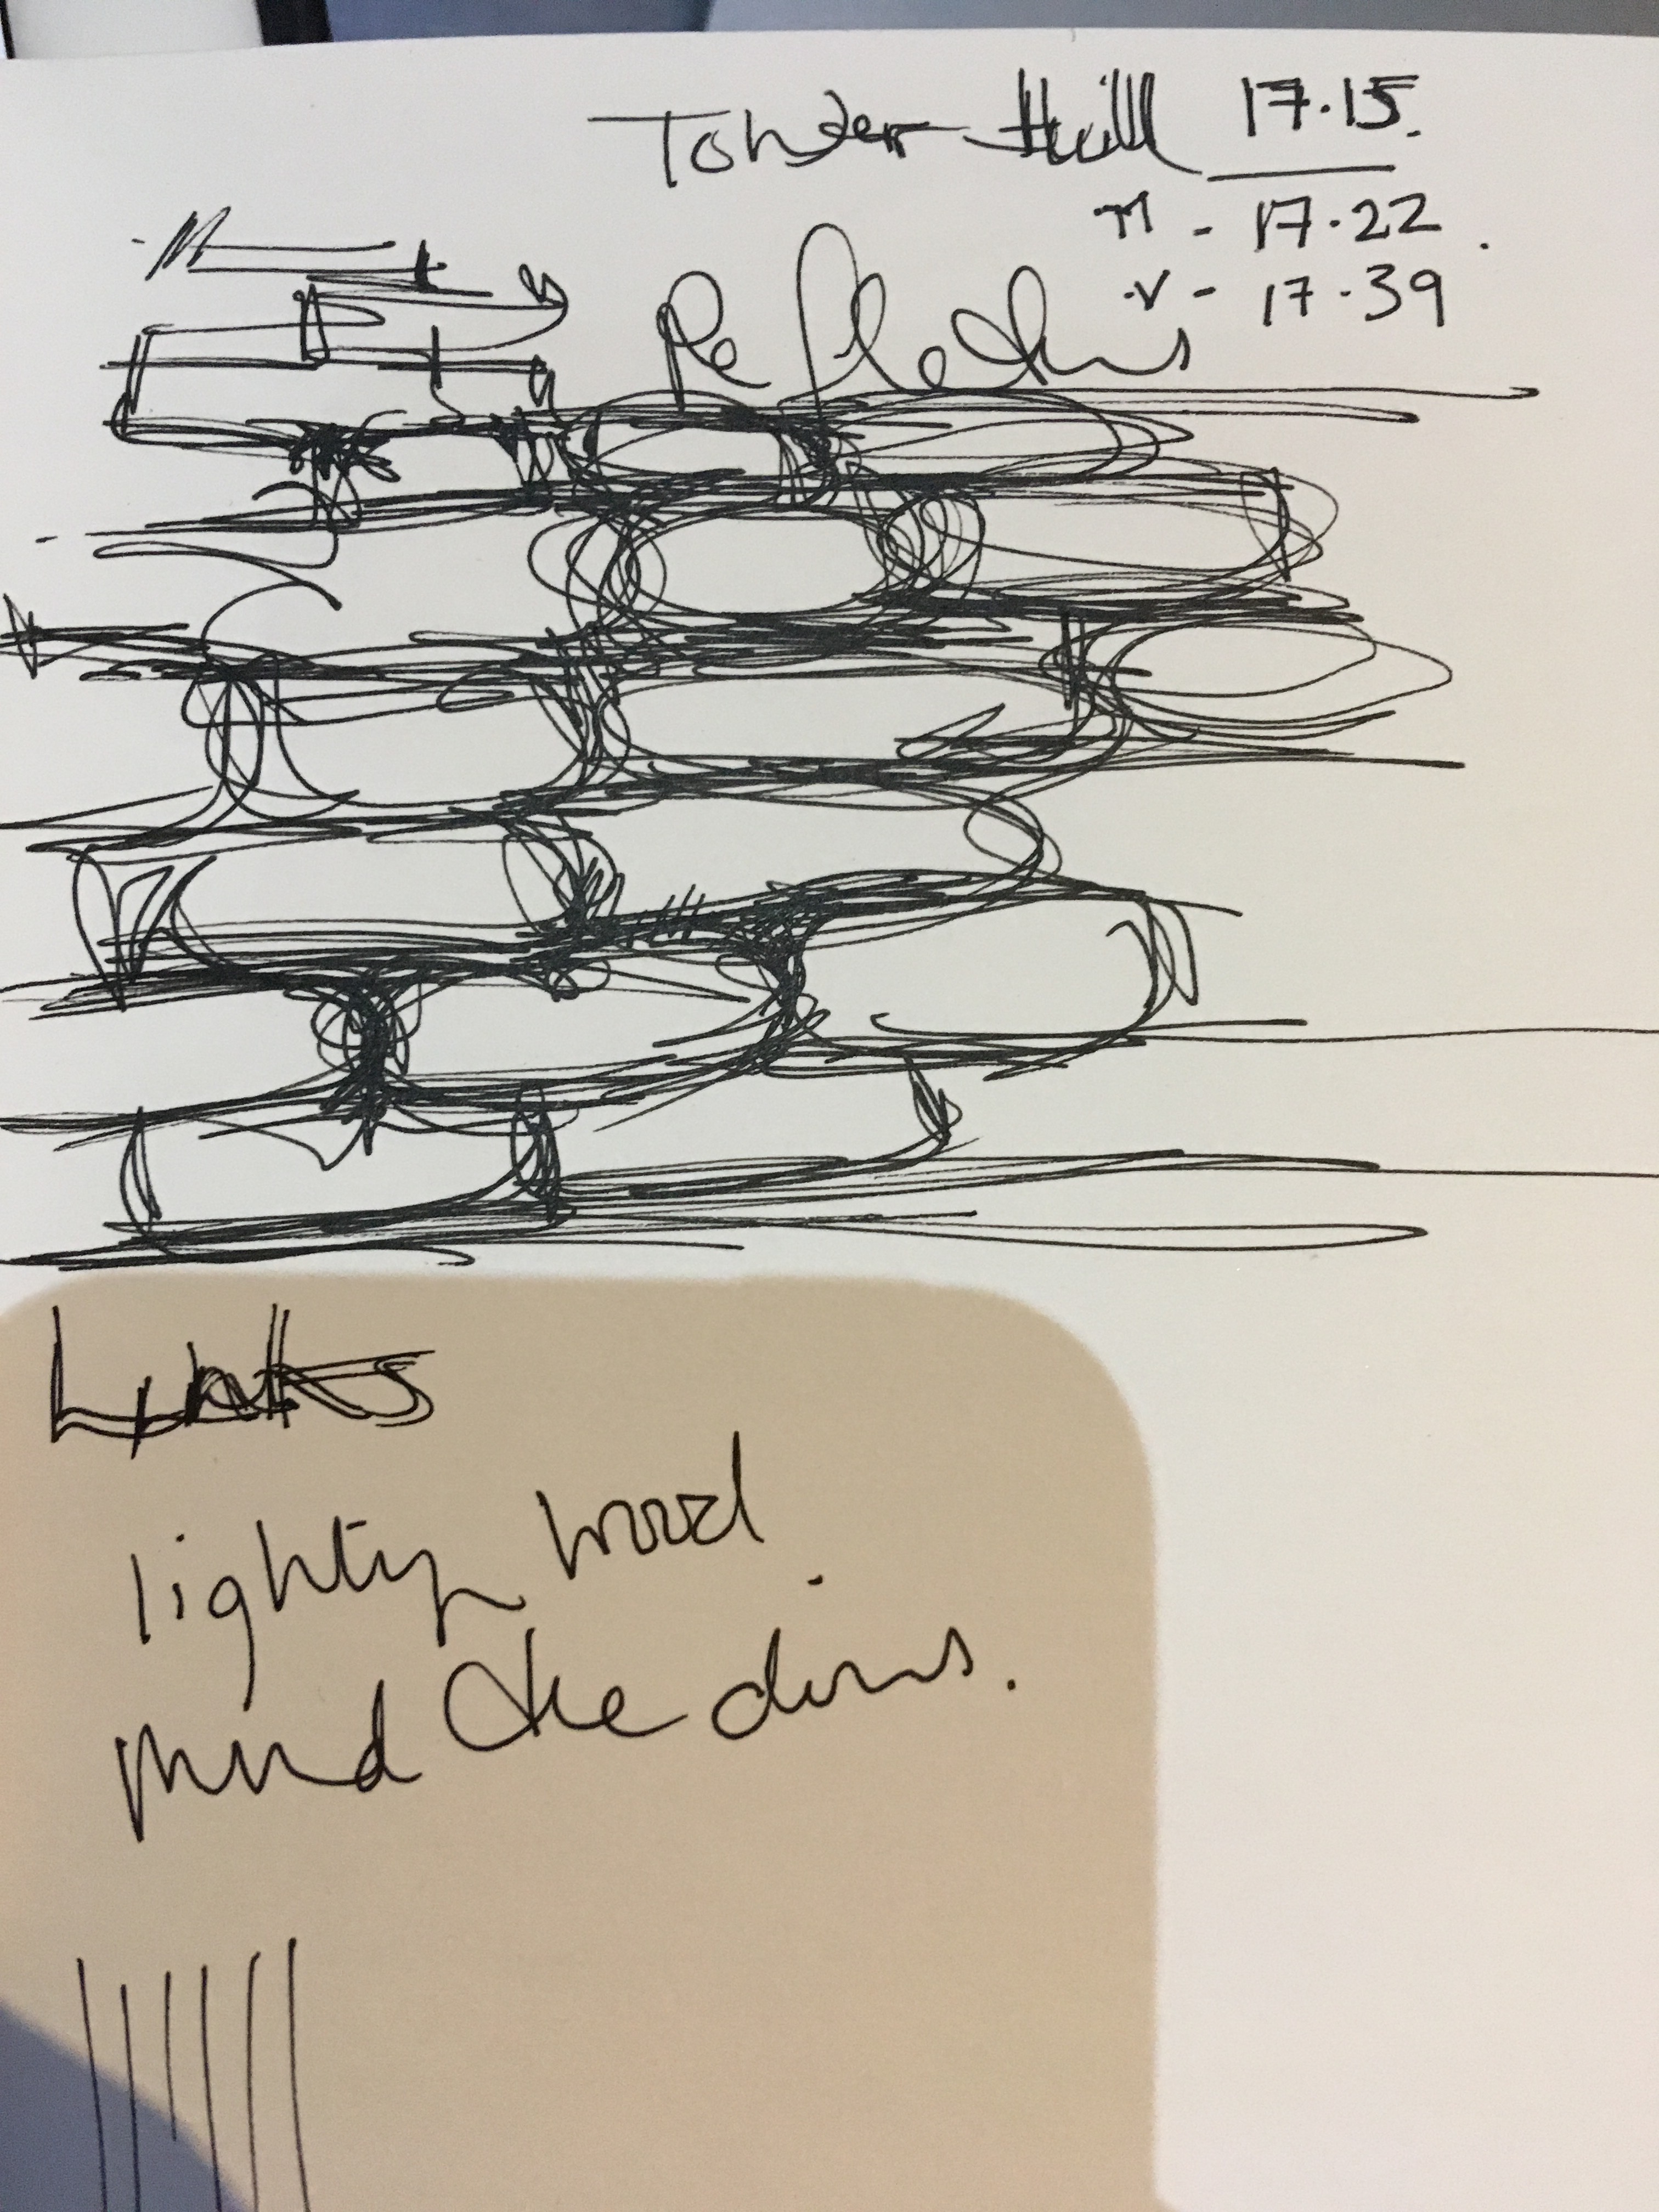 Tower Hill 17.15.
M - 17.22.
V - 17.39
Reflections
Links
lighting mood
mind the dims.